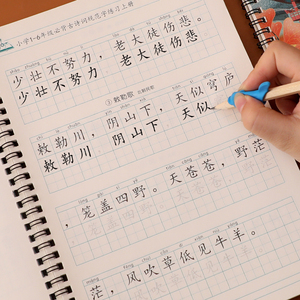 小学1-6年级必背古诗词规范字练习上册
少壮不努力，老大徒伤悲。
少壮不努力 老大徒伤悲
敕勒歌 北朝民歌
敕勒川，阴山下，天似穹庐
敕勒川 阴山下 天似
，笼盖四野。天苍苍，野茫
茫，风吹草低见牛羊。